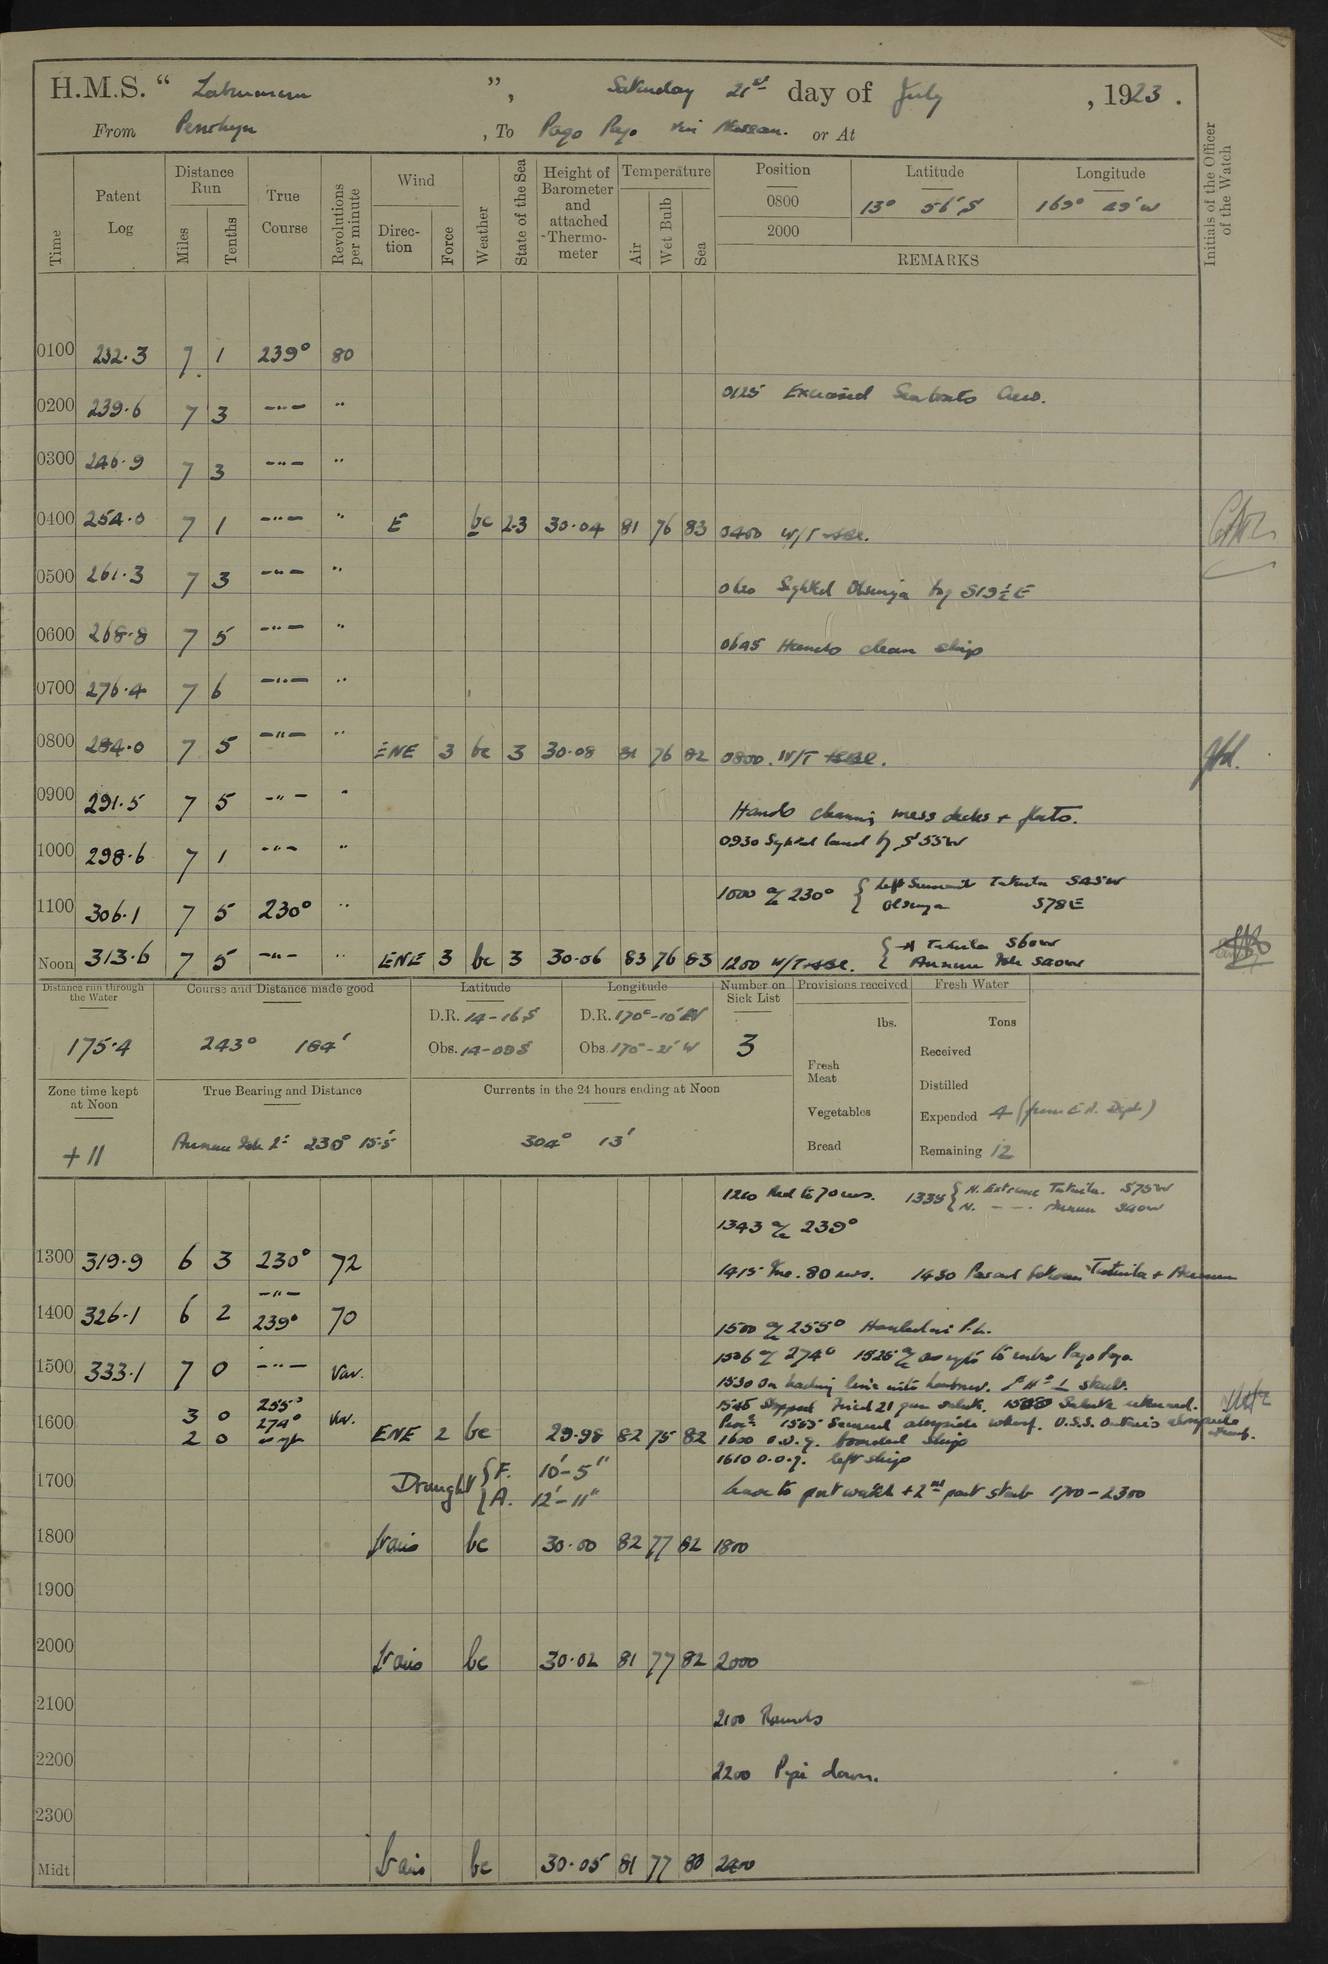 H.M.S. “ Laburnum ”, Saturday 21st day of July, 1923.
From Penrhyn, To Pago Pago via Nassau. or At
Time
Patent Log
Distance Run
Miles
Tenths
True Course
Revolutions per minute
Wind
Direction
Force
Weather
State of the Sea
Height of Barometer and attached Thermometer
Temperature
Air
Wet Bulb
Sea
Position
0800
2000
Latitude
13° 56' S
Longitude
169° 49' W
REMARKS
Initials of the Officer of the Watch
0100 232.3 7 1 239° 80
0125 Exercised Seaboats Crew.
0200 239.6 7 3 —"— "
0300 246.9 7 3 —"— "
0400 254.0 7 1 —"— " E bc 2.3 30.04 81 76 83 0400 W/T
0500 261.3 7 3 —"— "
0620 Sighted Olosenga brg S19½E
0600 268.8 7 5 —"— "
0645 Hands clean ship
0700 276.4 7 6 —"— "
0800 284.0 7 5 —"— " ENE 3 bc 3 30.08 81 76 82 0800. W/T
0900 291.5 7 5 —"— "
Hands cleaning mess decks + flats.
0930 Sighted land brg S55W
1000 298.6 7 1 —"— "
1000 a/c 230° { Left Summit Tutuila S45W
Olosenga S78E
1100 306.1 7 5 230° "
Noon 313.6 7 5 —"— " ENE 3 bc 3 30.06 83 76 83 1200 W/T
Tutuila S60W
Aunuu Isle S40W
Distance run through the Water
175.4
Course and Distance made good
243° 184'
Latitude
D.R. 14-16 S
Obs. 14-08 S
Longitude
D.R. 170°-10' W
Obs. 170°-21' W
Number on Sick List
3
Provisions received
lbs.
Fresh Meat
Vegetables
Bread
Fresh Water
Tons
Received
Distilled
Expended 4 (from E.R. Dept)
Remaining 12
Zone time kept at Noon
+11
True Bearing and Distance
Aunuu Isle Lt 230° 15.5'
Currents in the 24 hours ending at Noon
304° 13'
1210 Red to 70 revs. 1335 { N. Extreme Tutuila. S75W
N. — — Aunuu S40W
1343 a/c 239°
1300 319.9 6 3 230° 72
1415 Inc. 80 revs. 1430 Passed between Tutuila + Aunuu
1400 326.1 6 2 —"— 239° 70
1500 a/c 255° Hauled in P.L.
1500 333.1 7 0 —"— Var.
1506 a/c 274° 1525 a/c as req to enter Pago Pago
1530 On leading line into harbour.
1545 Stopped Fired 21 gun salute. Salute returned.
1600 3 0 255° 274° Var.
2 0 ENE 2 bc 29.98 82 75 82
1555 Secured alongside wharf. U.S.S. Ontario alongside wharf.
1600 O.O.G. boarded ship
1610 O.O.G. left ship
1700 Draught { F. 10'-5"
A. 12'-11"
Leave to port watch + 2nd part starb 1700-2300
1800 Vairs bc 30.00 82 77 82 1800
1900
2000 Vairs bc 30.02 81 77 82 2000
2100
2100 Rounds
2200
2200 Pipe down.
2300
Midt Vairs bc 30.05 81 77 80 2400